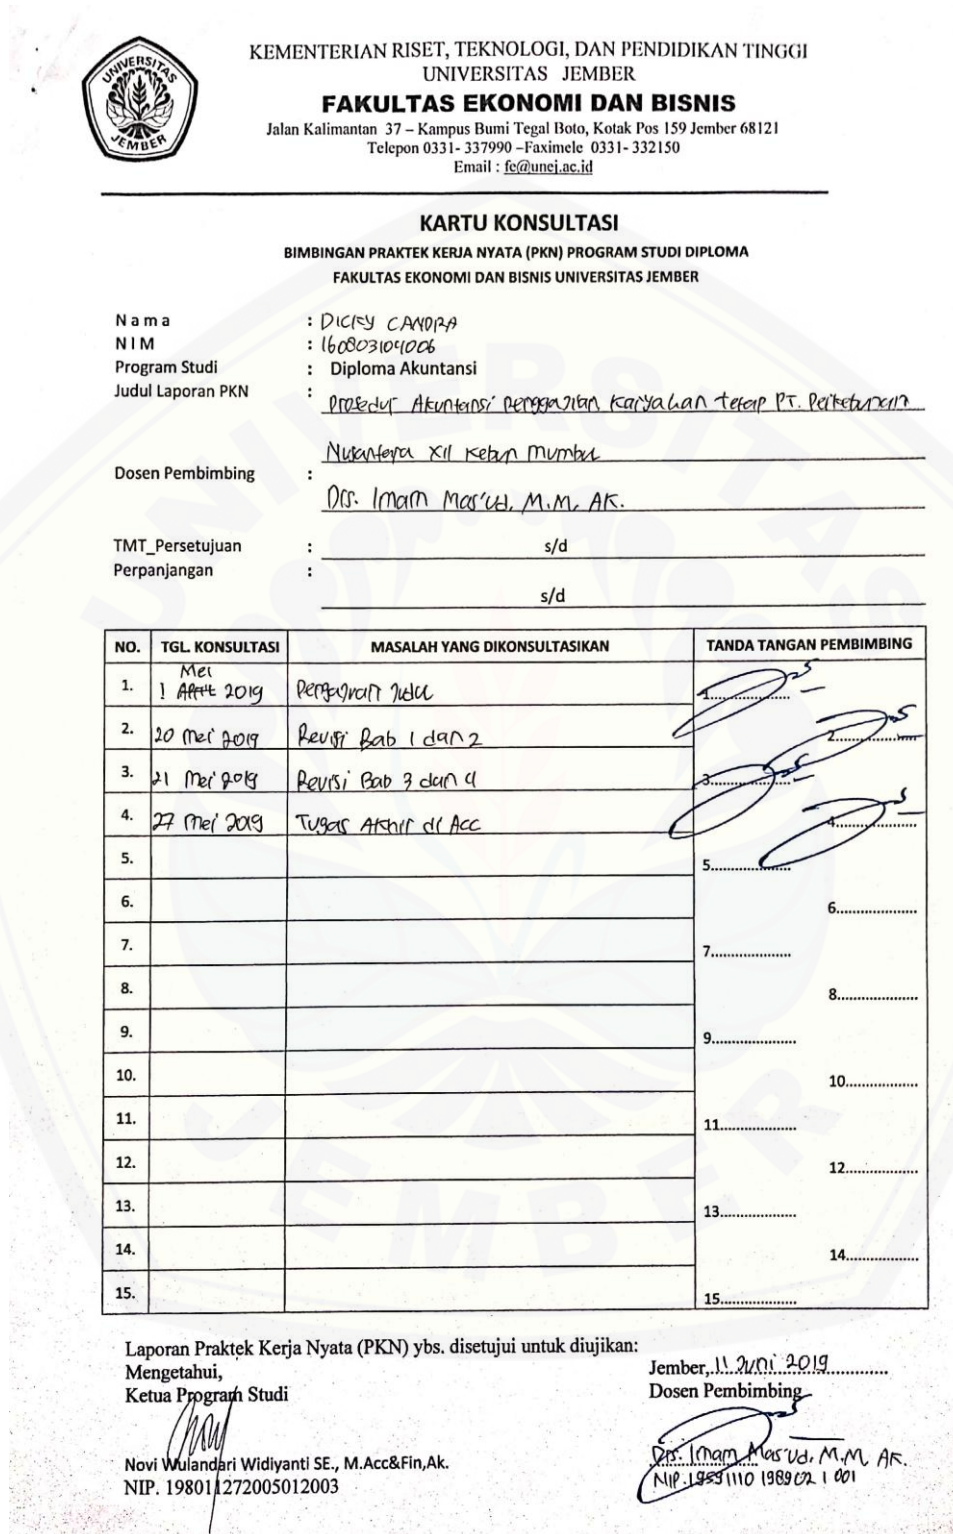 UNIVERSITAS
JEMBER
KEMENTERIAN RISET, TEKNOLOGI, DAN PENDIDIKAN TINGGI
UNIVERSITAS JEMBER
FAKULTAS EKONOMI DAN BISNIS
Jalan Kalimantan 37 – Kampus Bumi Tegal Boto, Kotak Pos 159 Jember 68121
Telepon 0331- 337990 –Faximele 0331- 332150
Email : fe@unej.ac.id
KARTU KONSULTASI
BIMBINGAN PRAKTEK KERJA NYATA (PKN) PROGRAM STUDI DIPLOMA
FAKULTAS EKONOMI DAN BISNIS UNIVERSITAS JEMBER
Nama : DICKY CANDRA
NIM : 160803104006
Program Studi : Diploma Akuntansi
Judul Laporan PKN : Prosedur Akuntansi Penggajian Karyawan tetap PT. Perkebunan
Nusantara XII Kebun Mumbul
Dosen Pembimbing :
Drs. Imam Mas'ud, M.M, AK.
TMT_Persetujuan : s/d
Perpanjangan :
s/d
NO. TGL. KONSULTASI MASALAH YANG DIKONSULTASIKAN TANDA TANGAN PEMBIMBING
Mei
1. 1 April 2019 Pengajuan Judul 1....................
2. 20 Mei 2019 Revisi Bab 1 dan 2 2....................
3. 21 Mei 2019 Revisi Bab 3 dan 4 3....................
4. 27 Mei 2019 Tugas Akhir di Acc 4....................
5. 5....................
6. 6....................
7. 7....................
8. 8....................
9. 9....................
10. 10..................
11. 11..................
12. 12..................
13. 13..................
14. 14..................
15. 15..................
Laporan Praktek Kerja Nyata (PKN) ybs. disetujui untuk diujikan:
Mengetahui,
Ketua Program Studi
Novi Wulandari Widiyanti SE., M.Acc&Fin,Ak.
NIP. 198011272005012003
Jember, 11 Juni 2019
Dosen Pembimbing
Drs. Imam Mas'ud, M.M, AK.
NIP. 19591110 198902 1 001
UNIVERSITAS
JEMBER